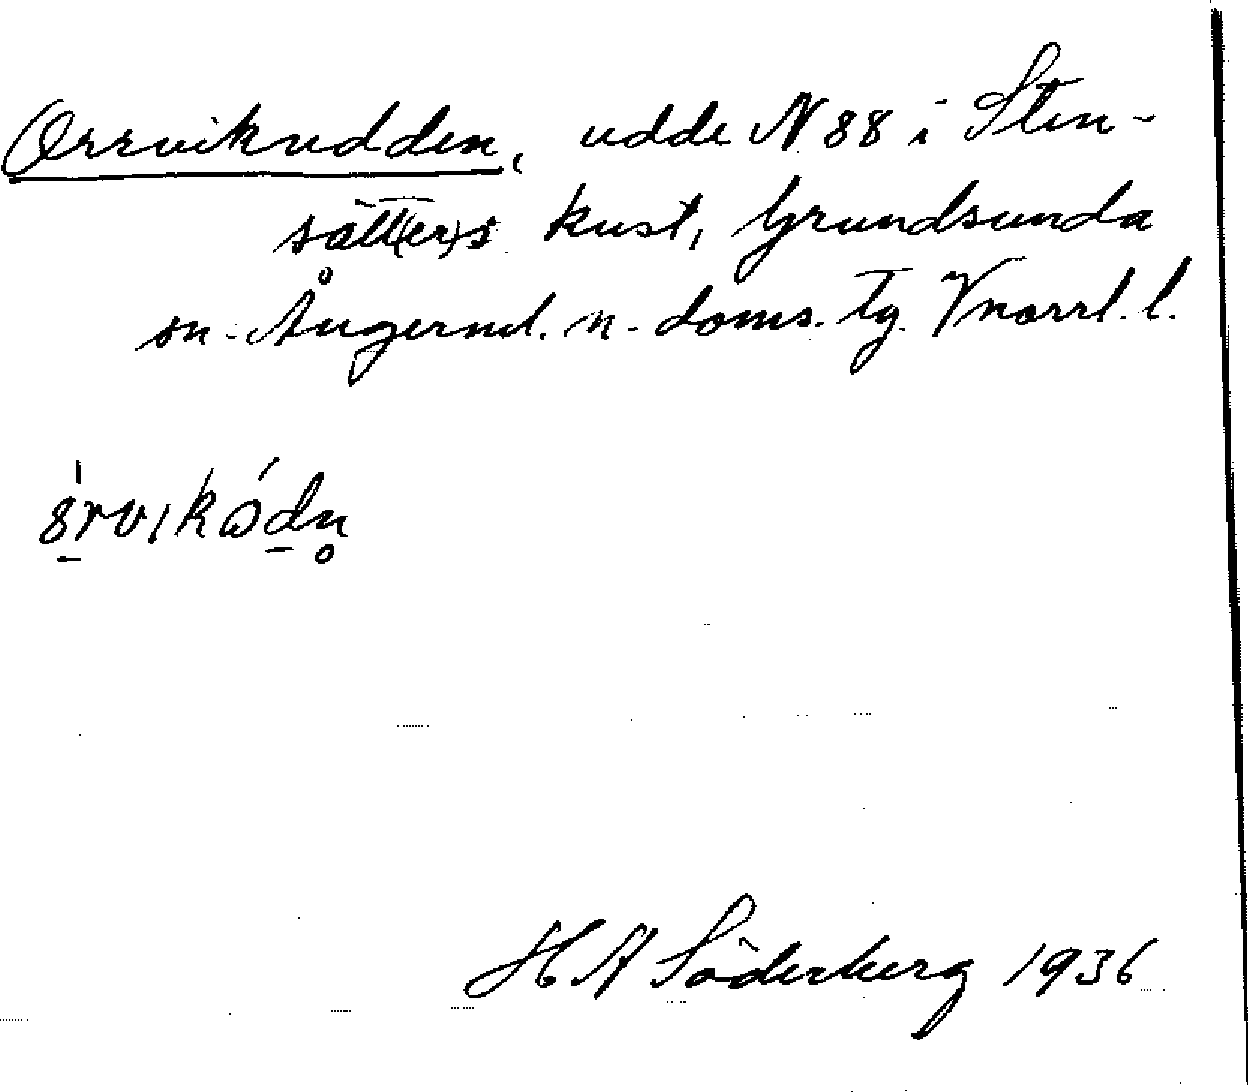 Orrvikudden, udde N 88 i Sten-
sätt(er)s kust, Grundsunda
sn. Ångerml. n. doms. tg. Vnorrl. l.
H A Söderberg 1936